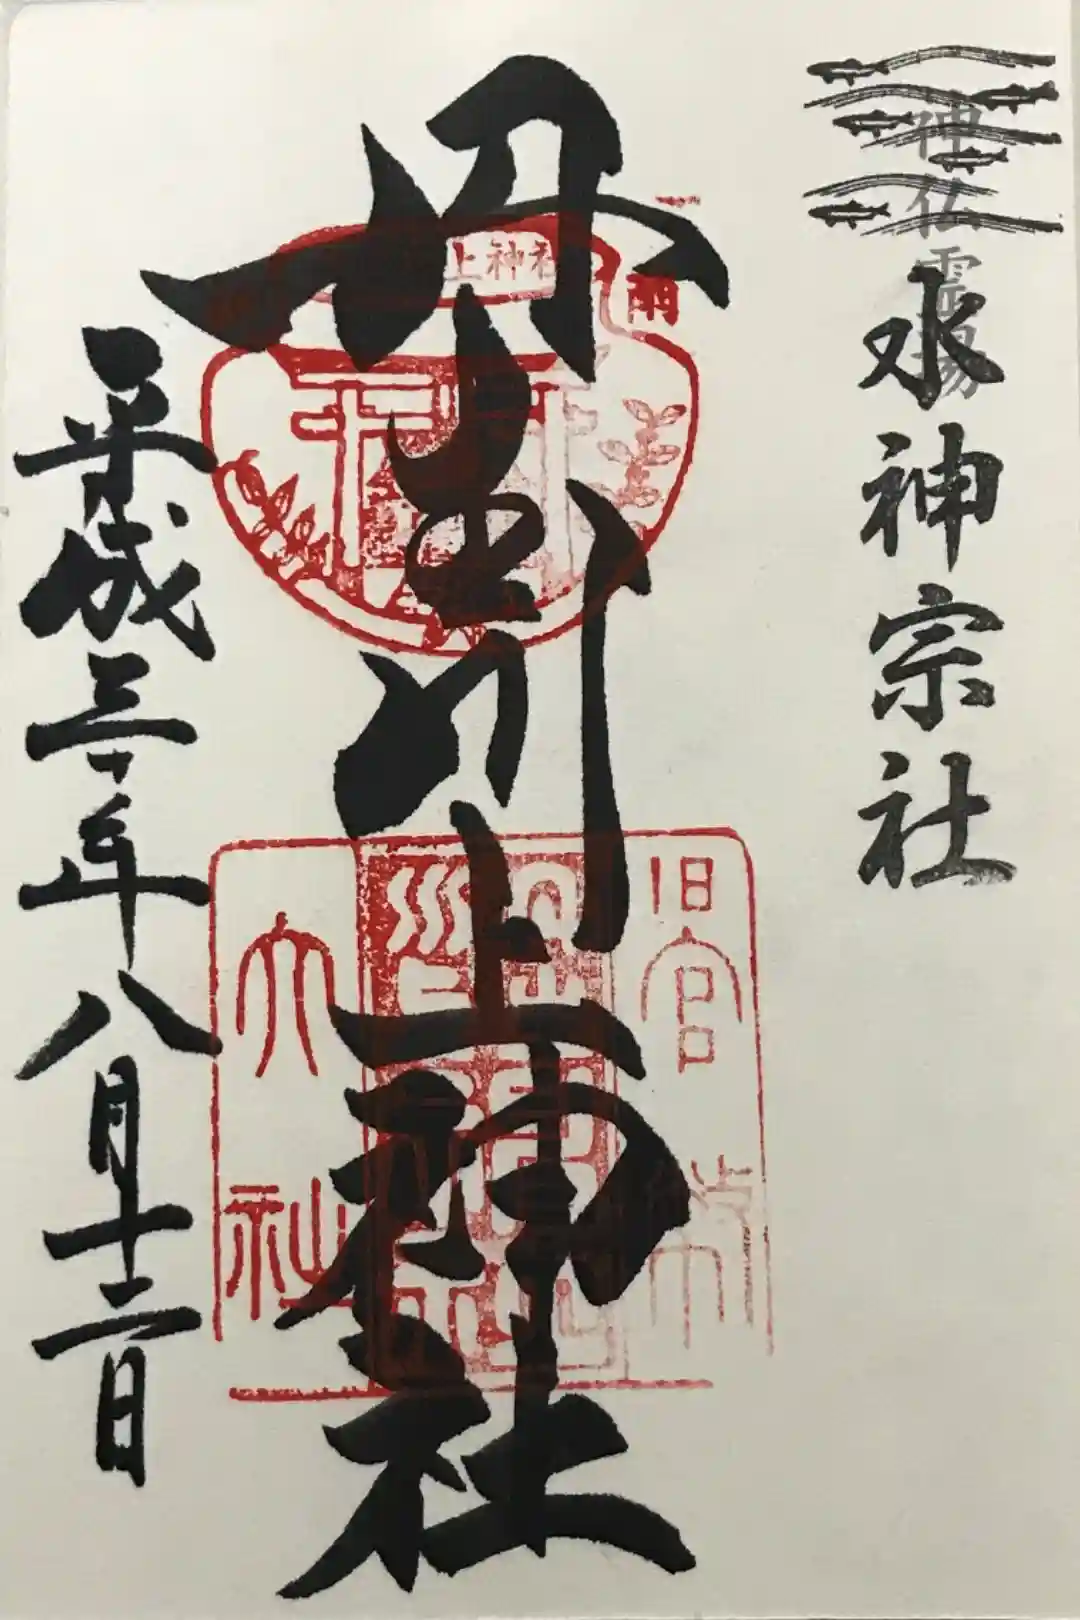 神仏霊場
水神宗社
丹生川上神社
平成三十年八月十二日
上神社
雨
旧官幣
大社